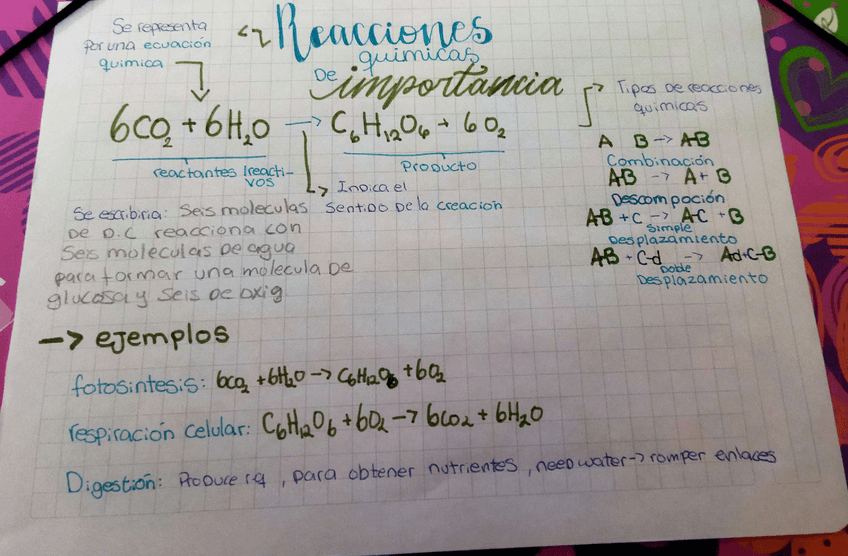 Se representa
por una ecuación
química
Reacciones
químicas
De importancia
6CO₂ + 6H₂O → C₆H₁₂O₆ + 6O₂
reactantes /reacti-
vos
Producto
Indica el
sentido de la creacion
Se escribiria: Seis moleculas
De D.C reacciona con
Seis moleculas De agua
para formar una molecula De
glucosa y Seis De oxig
Tipos De reacciones
químicas
A B -> A-B
Combinación
AB -> A + B
Descompoción
A-B + C -> A-C + B
Simple
Desplazamiento
A-B + C-d -> Ad+C-B
Doble
Desplazamiento
-> ejemplos
fotosintesis: 6CO₂ + 6H₂O -> C₆H₁₂O₆ + 6O₂
respiración celular: C₆H₁₂O₆ + 6O₂ -> 6CO₂ + 6H₂O
Digestión: Produce rq, para obtener nutrientes, need water -> romper enlaces